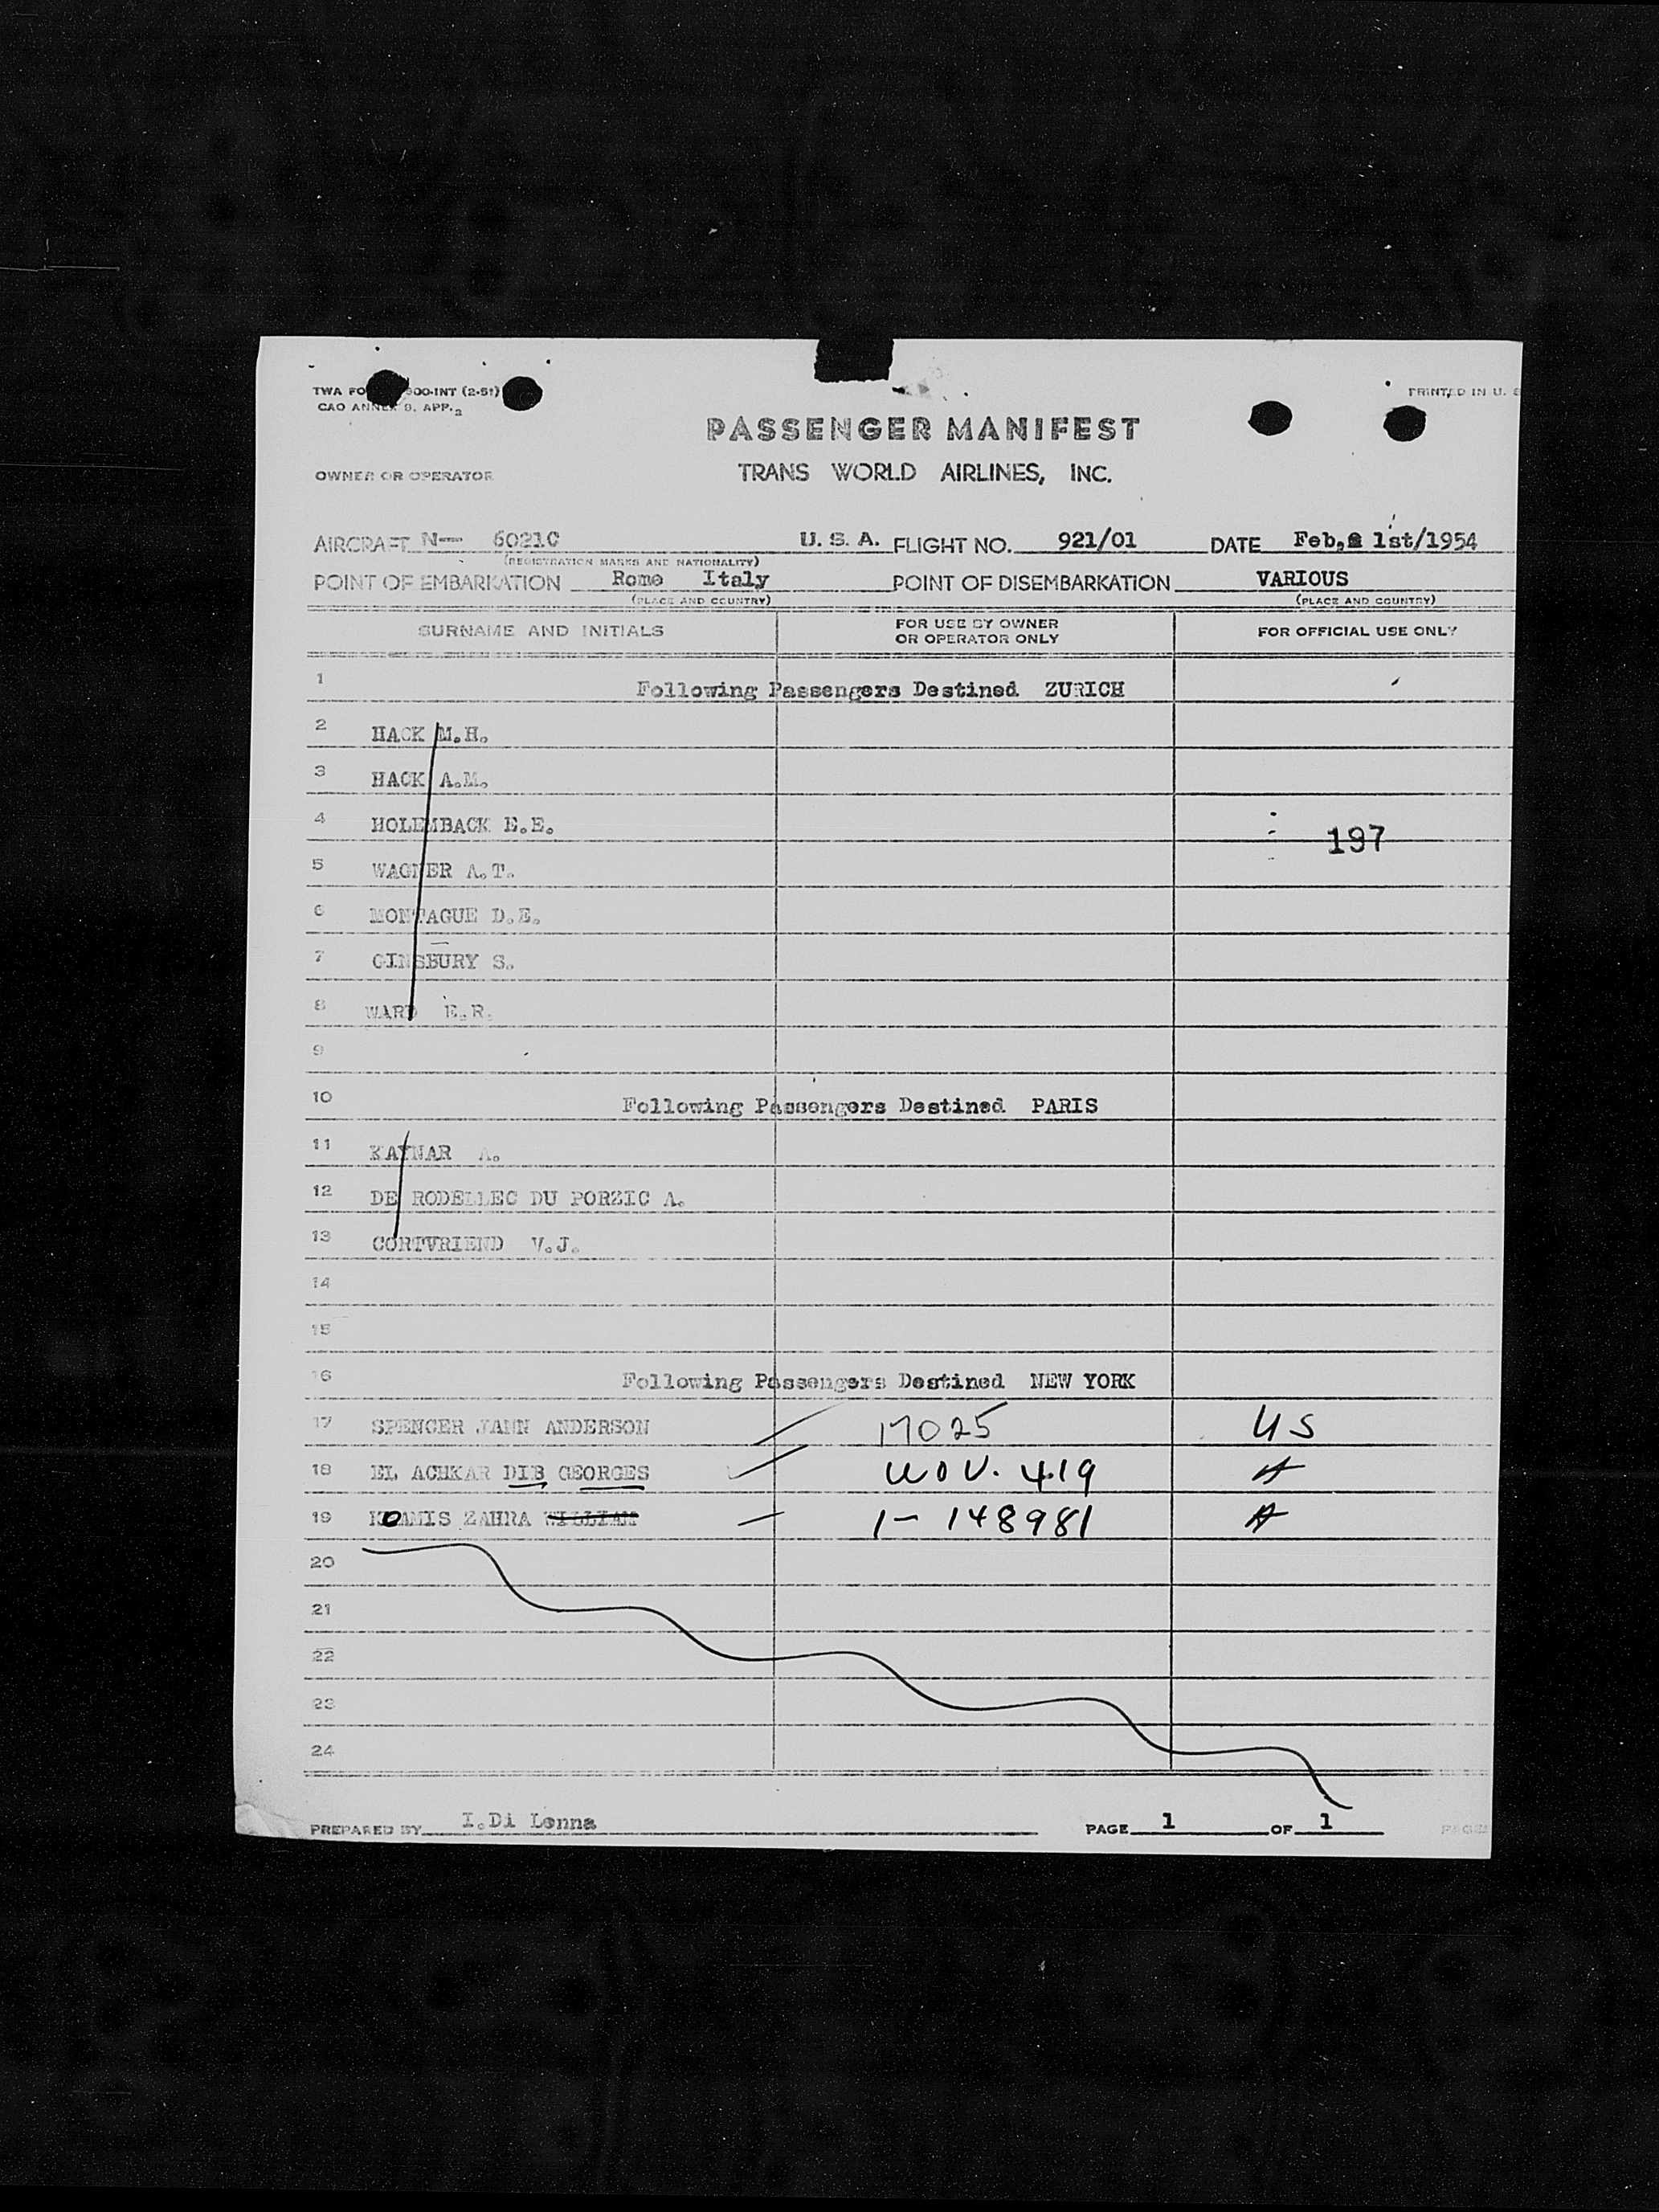 TWA FO 900-INT (2-51)
PRINTED IN U. S
CAO ANNEX 9. APP. 2
PASSENGER MANIFEST
OWNER OR OPERATOR TRANS WORLD AIRLINES, INC.
AIRCRAFT N— 6021C U. S. A. FLIGHT NO. 921/01 DATE Feb, 1st/1954
(REGISTRATION MARKS AND NATIONALITY)
POINT OF EMBARKATION Rome Italy POINT OF DISEMBARKATION VARIOUS
(PLACE AND COUNTRY) (PLACE AND COUNTRY)
SURNAME AND INITIALS FOR USE BY OWNER OR OPERATOR ONLY FOR OFFICIAL USE ONLY
1 Following Passengers Destined ZURICH
2 HACK M.H.
3 HACK A.M.
4 HOLEMBACK E.E. 197
5 WAGNER A.T.
6 MONTAGUE D.E.
7 GINSBURY S.
8 WARD E.R.
9
10 Following Passengers Destined PARIS
11 KAYNAR A.
12 DE RODELLEC DU PORZIC A.
13 CORTVRIEND V.J.
14
15
16 Following Passengers Destined NEW YORK
17 SPENCER JANN ANDERSON 17025 US
18 EL ACHKAR DIB GEORGES 419 A
19 ZAHRA WILLIAM 1- 148981 A
20
21
22
23
24
PREPARED BY I.Di Lenna PAGE 1 OF 1